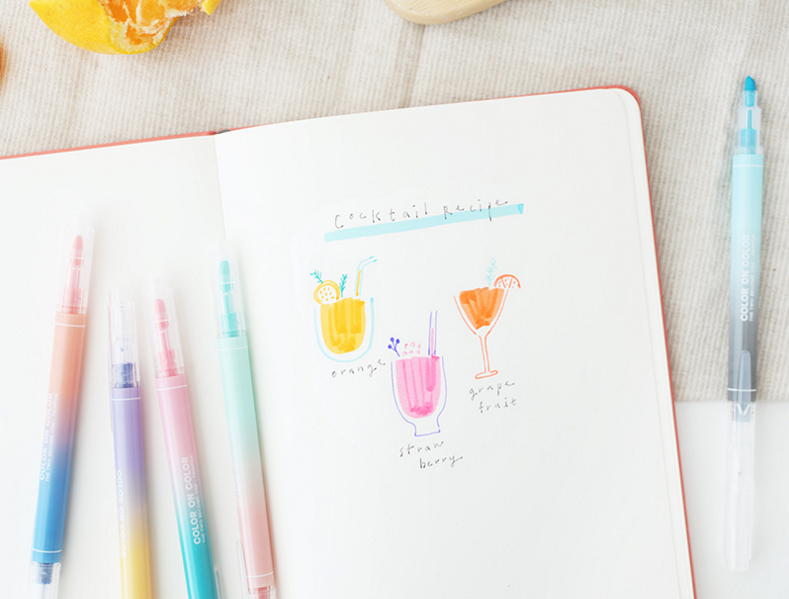 Cocktail Recipe
orange
grape
fruit
straw
berry
COLOR ON COLOR
COLOR ON COLOR
COLOR ON COLOR